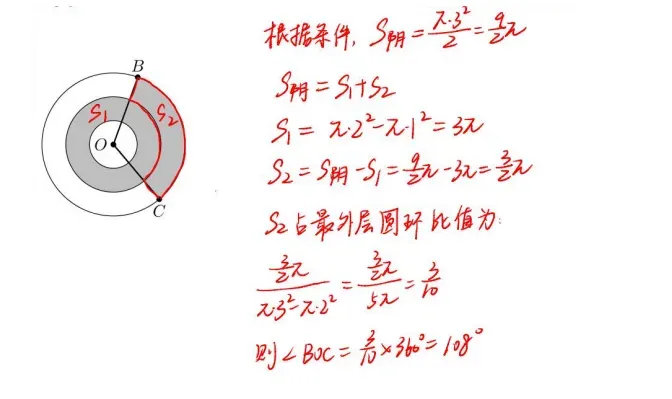 根据条件, S阴 = π·3²/2 = 9/2π
S阴 = S₁+S₂
S₁ = π·2²-π·1² = 3π
S₂ = S阴 - S₁ = 9/2π - 3π = 3/2π
S₂占最外层圆环比值为:
3/2π/(π·3²-π·2²) = 3/2π/5π = 3/10
则∠BOC = 3/10 × 360° = 108°
B
S₁
S₂
O
C